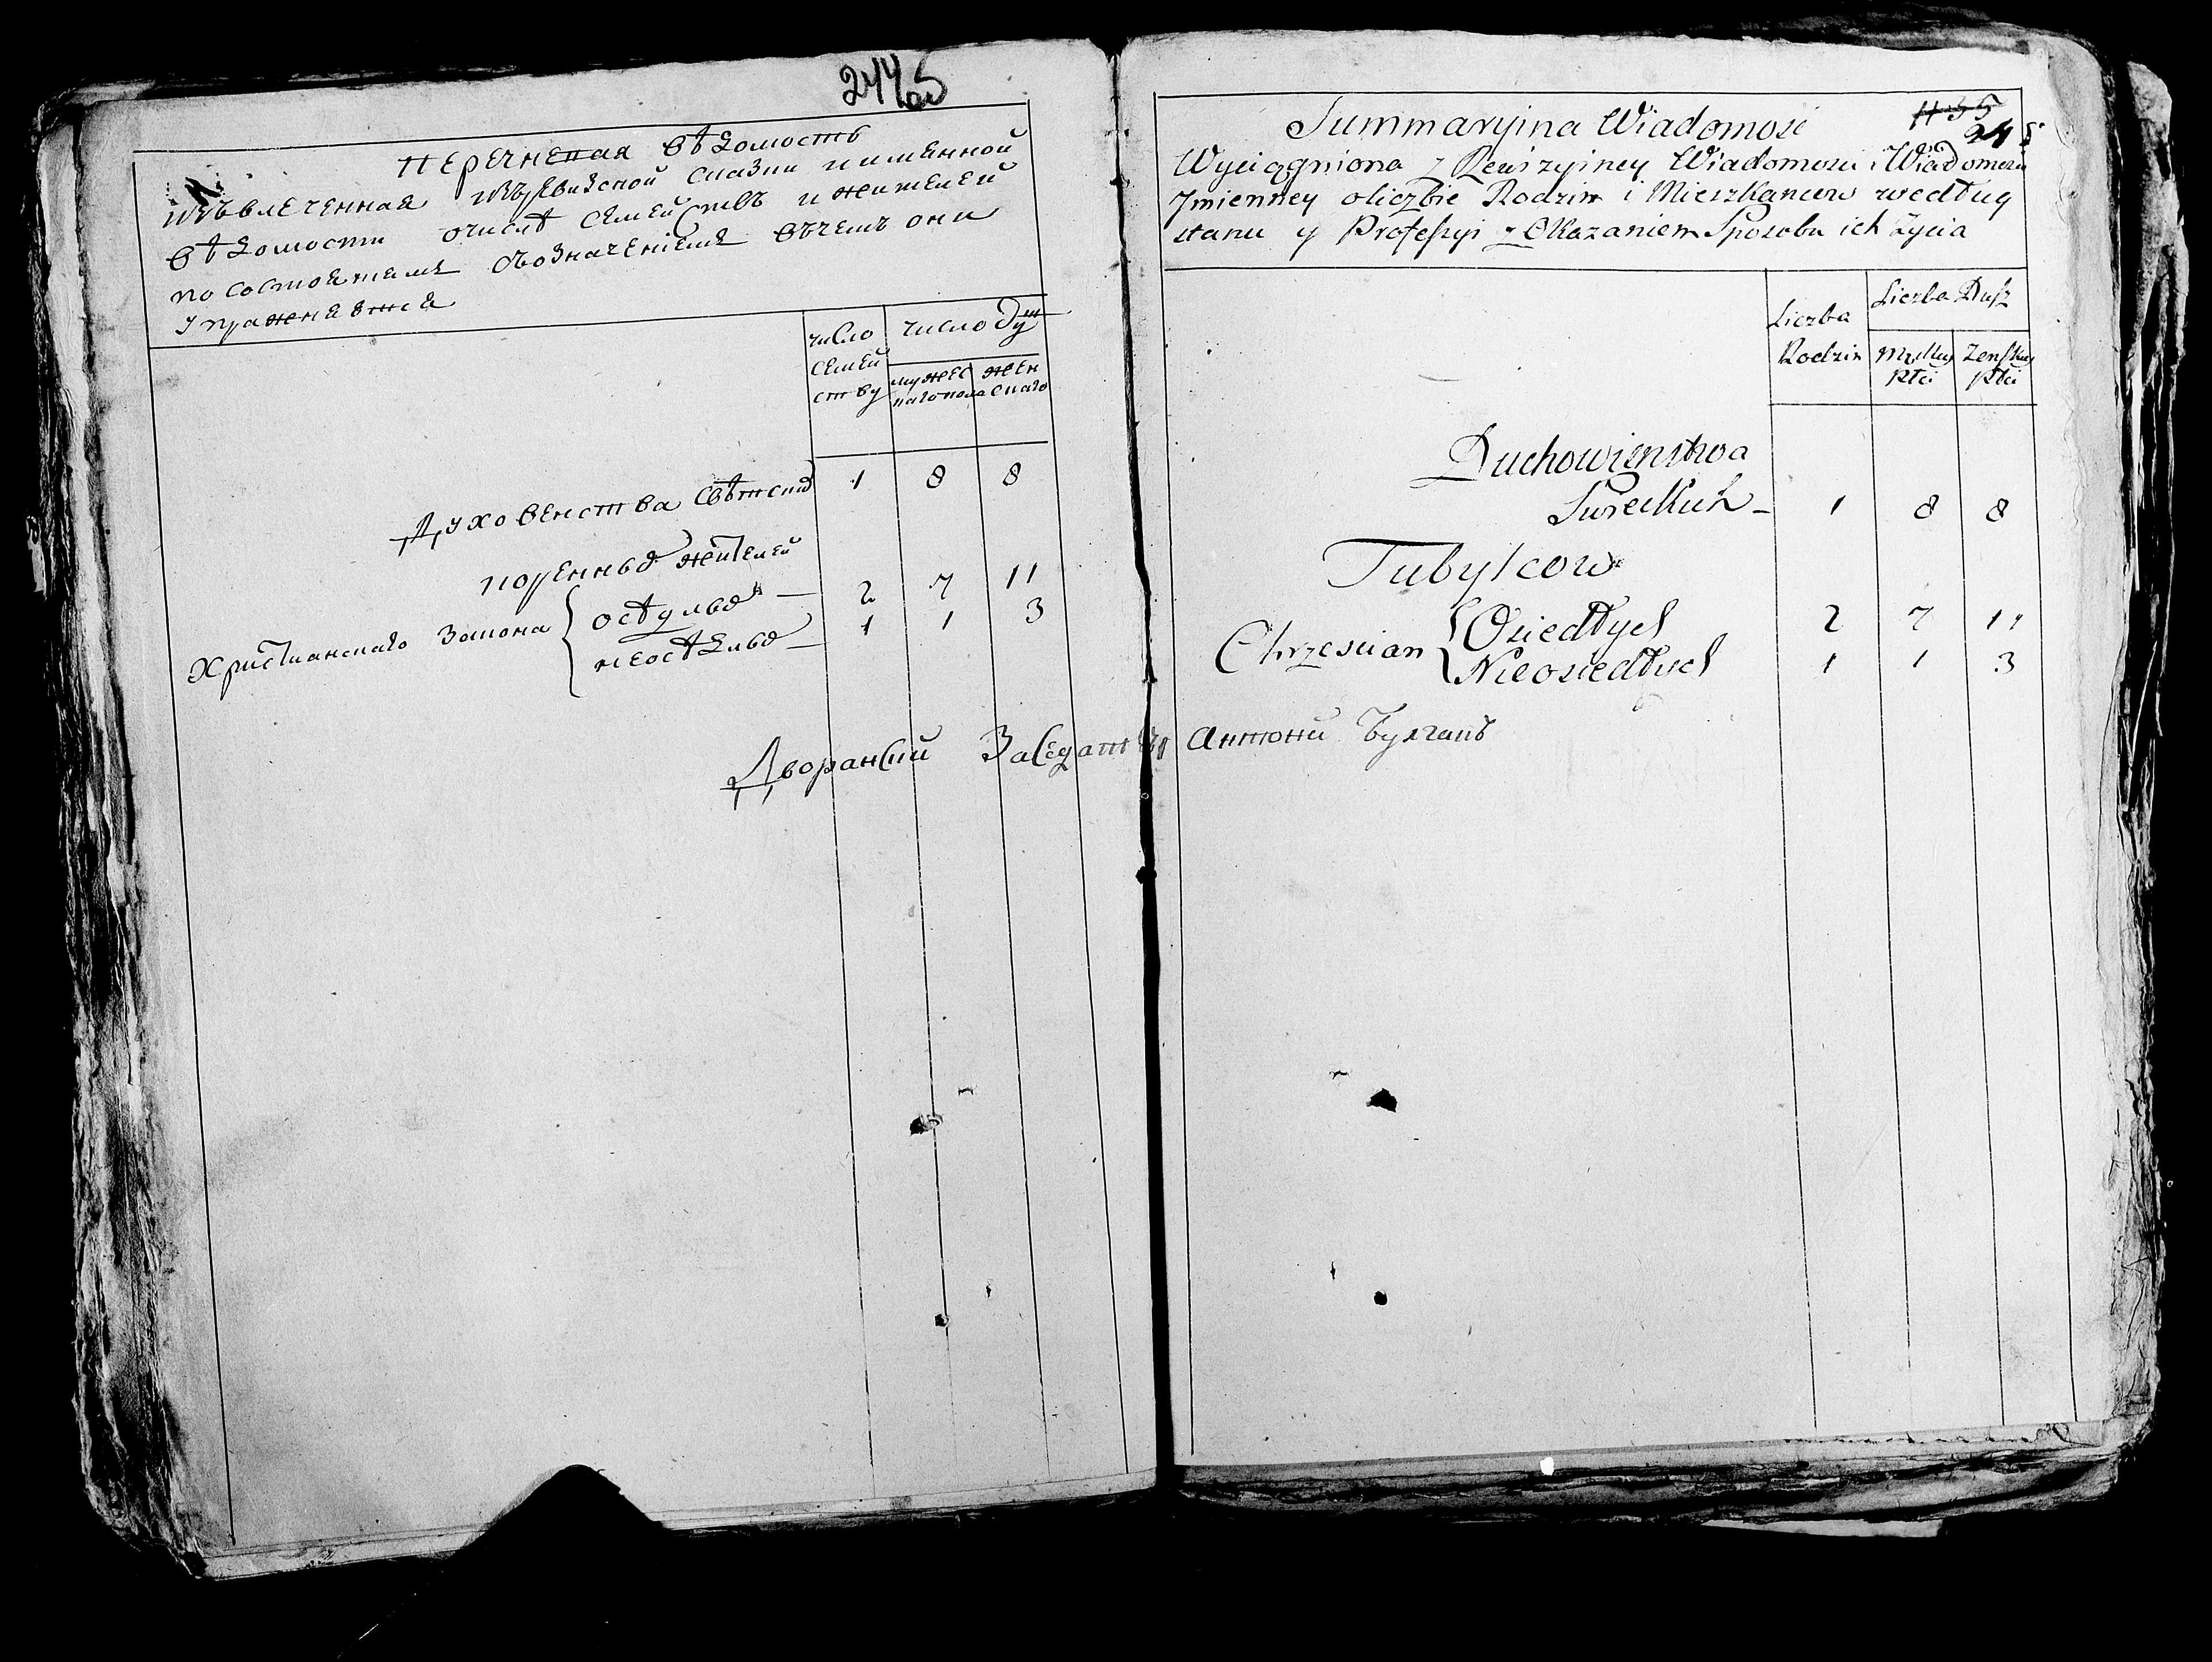 244об
перечневая вѣдомость
извлеченная изъ ревизской сказки и именной
вѣдомости о числѣ семействъ и жителей
по состоянiямъ съ означенiемъ въ чемъ они
упражняются
число семействъ
число душ
мужескаго пола
женскаго
Духовенства свѣтских 1 8 8
коренных жителей
Христианскаго закона { осѣдлых — 2 7 11
неосѣдлых — 1 1 3
Дворянский Заседатель Антони Булгакъ
1155
245
Summaryina Wiadomość
Wyciągniona z Rewizyiney Wiadomości i Wiadomości
Jmienney o liczbie Rodzin i Mieszkancow według
stanu y Professyi z Okazaniem Sposobu ich Życia
Liczba Rodzin
Liczba Dusz
Męskiey Płci
Zenskiey Płci
Duchowienstwa
Swieckich — 1 8 8
Tubylcow
Chrzescian { Osiedłych 2 7 11
Nieosiedłych 1 1 3